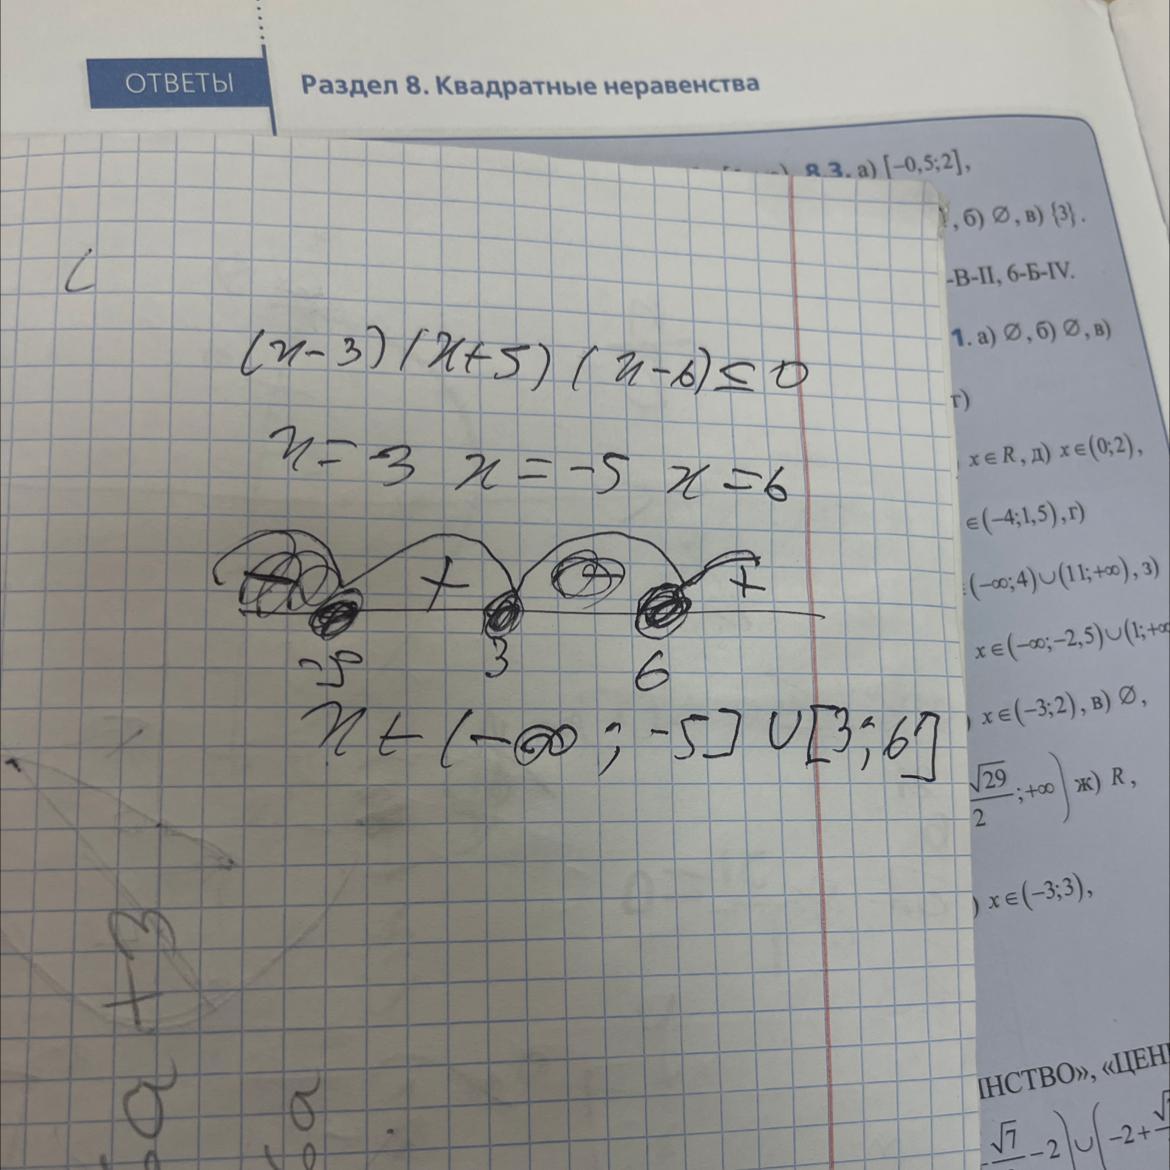 ОТВЕТЫ
Раздел 8. Квадратные неравенства
8.3. а) [-0,5;2],
, б) ∅, в) {3}.
-В-II, 6-Б-IV.
1. а) ∅, б) ∅, в)
г)
x∈R, д) x∈(0;2),
∈(-4;1,5), г)
(-∞;4)∪(11;+∞), з)
x∈(-∞;-2,5)∪(1;+∞
) x∈(-3;2), в) ∅,
√29/2;+∞) ж) R,
) x∈(-3;3),
ІНСТВО», «ЦЕН
√7
-2)∪(-2+√
(x-3)(x+5)(x-6)≤0
x=3 x=-5 x=6
- + - +
-5 3 6
x∈(-∞;-5]∪[3;6]
a+3
a